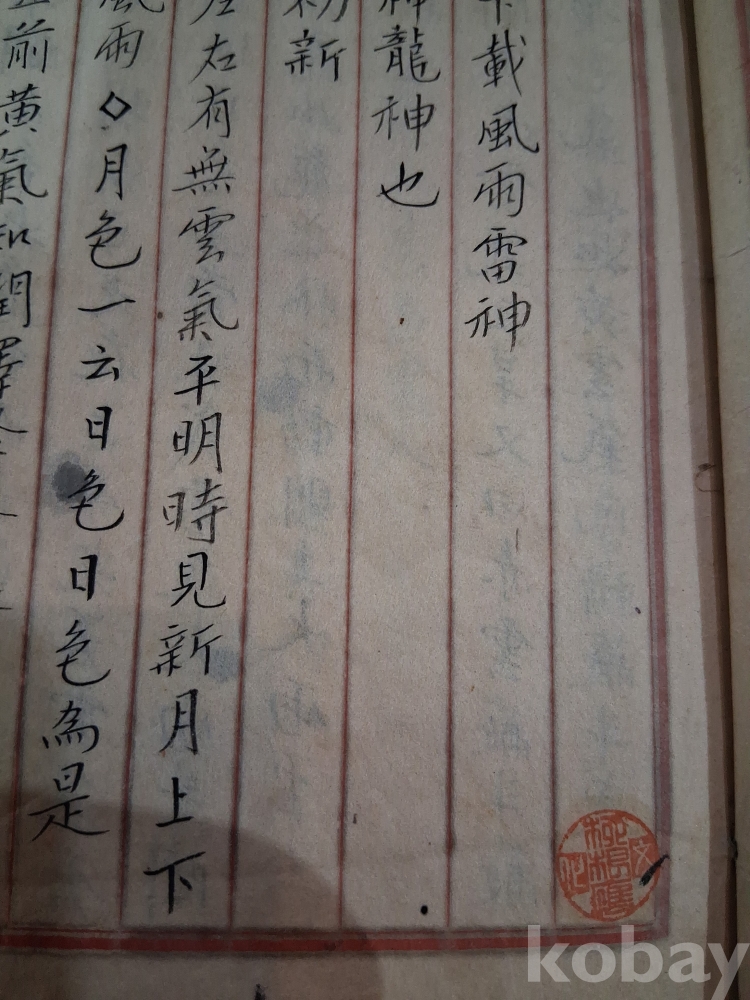 載風雨雷神
神龍神也
初新
左右有無雲氣平明時見新月上下
風雨◇月色一云日色日色為是
前黃氣如潤澤
kobay